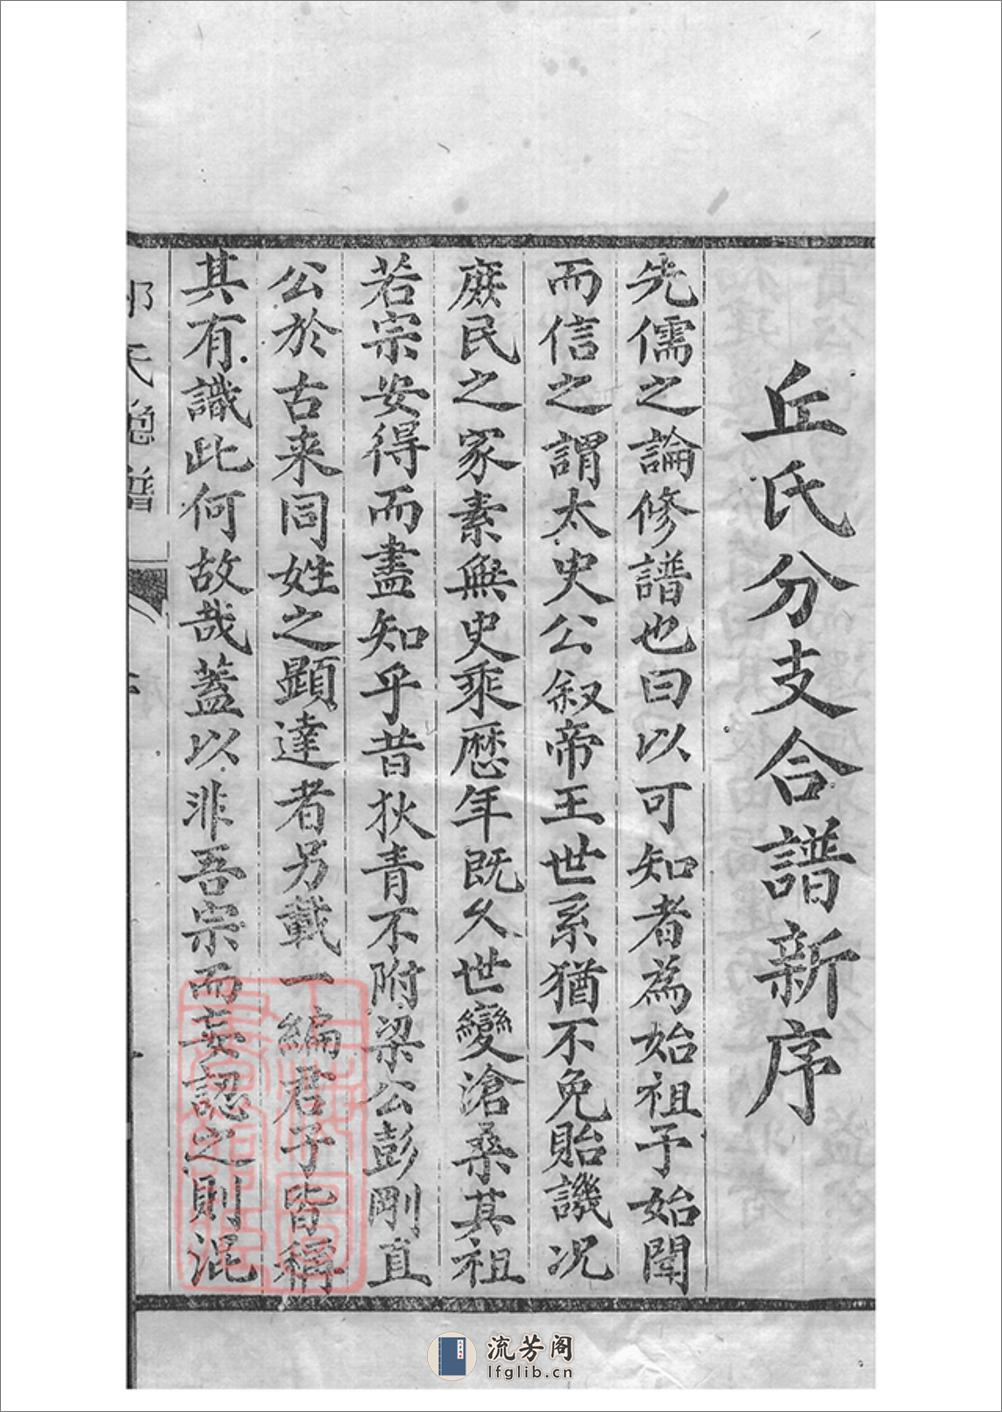 丘氏分支合譜新序
先儒之論修譜也曰以可知者為始祖予始聞
而信之謂太史公叙帝王世系猶不免貽譏况
庶民之家素無史乘歷年既久世變滄桑其祖
若宗安得而盡知乎昔狄青不附梁公彭剛直
公於古来同姓之顯達者另載一編君子皆稱
其有識此何故哉蓋以非吾宗而妄認之則混
氏總譜
流芳阁
lfglib.cn